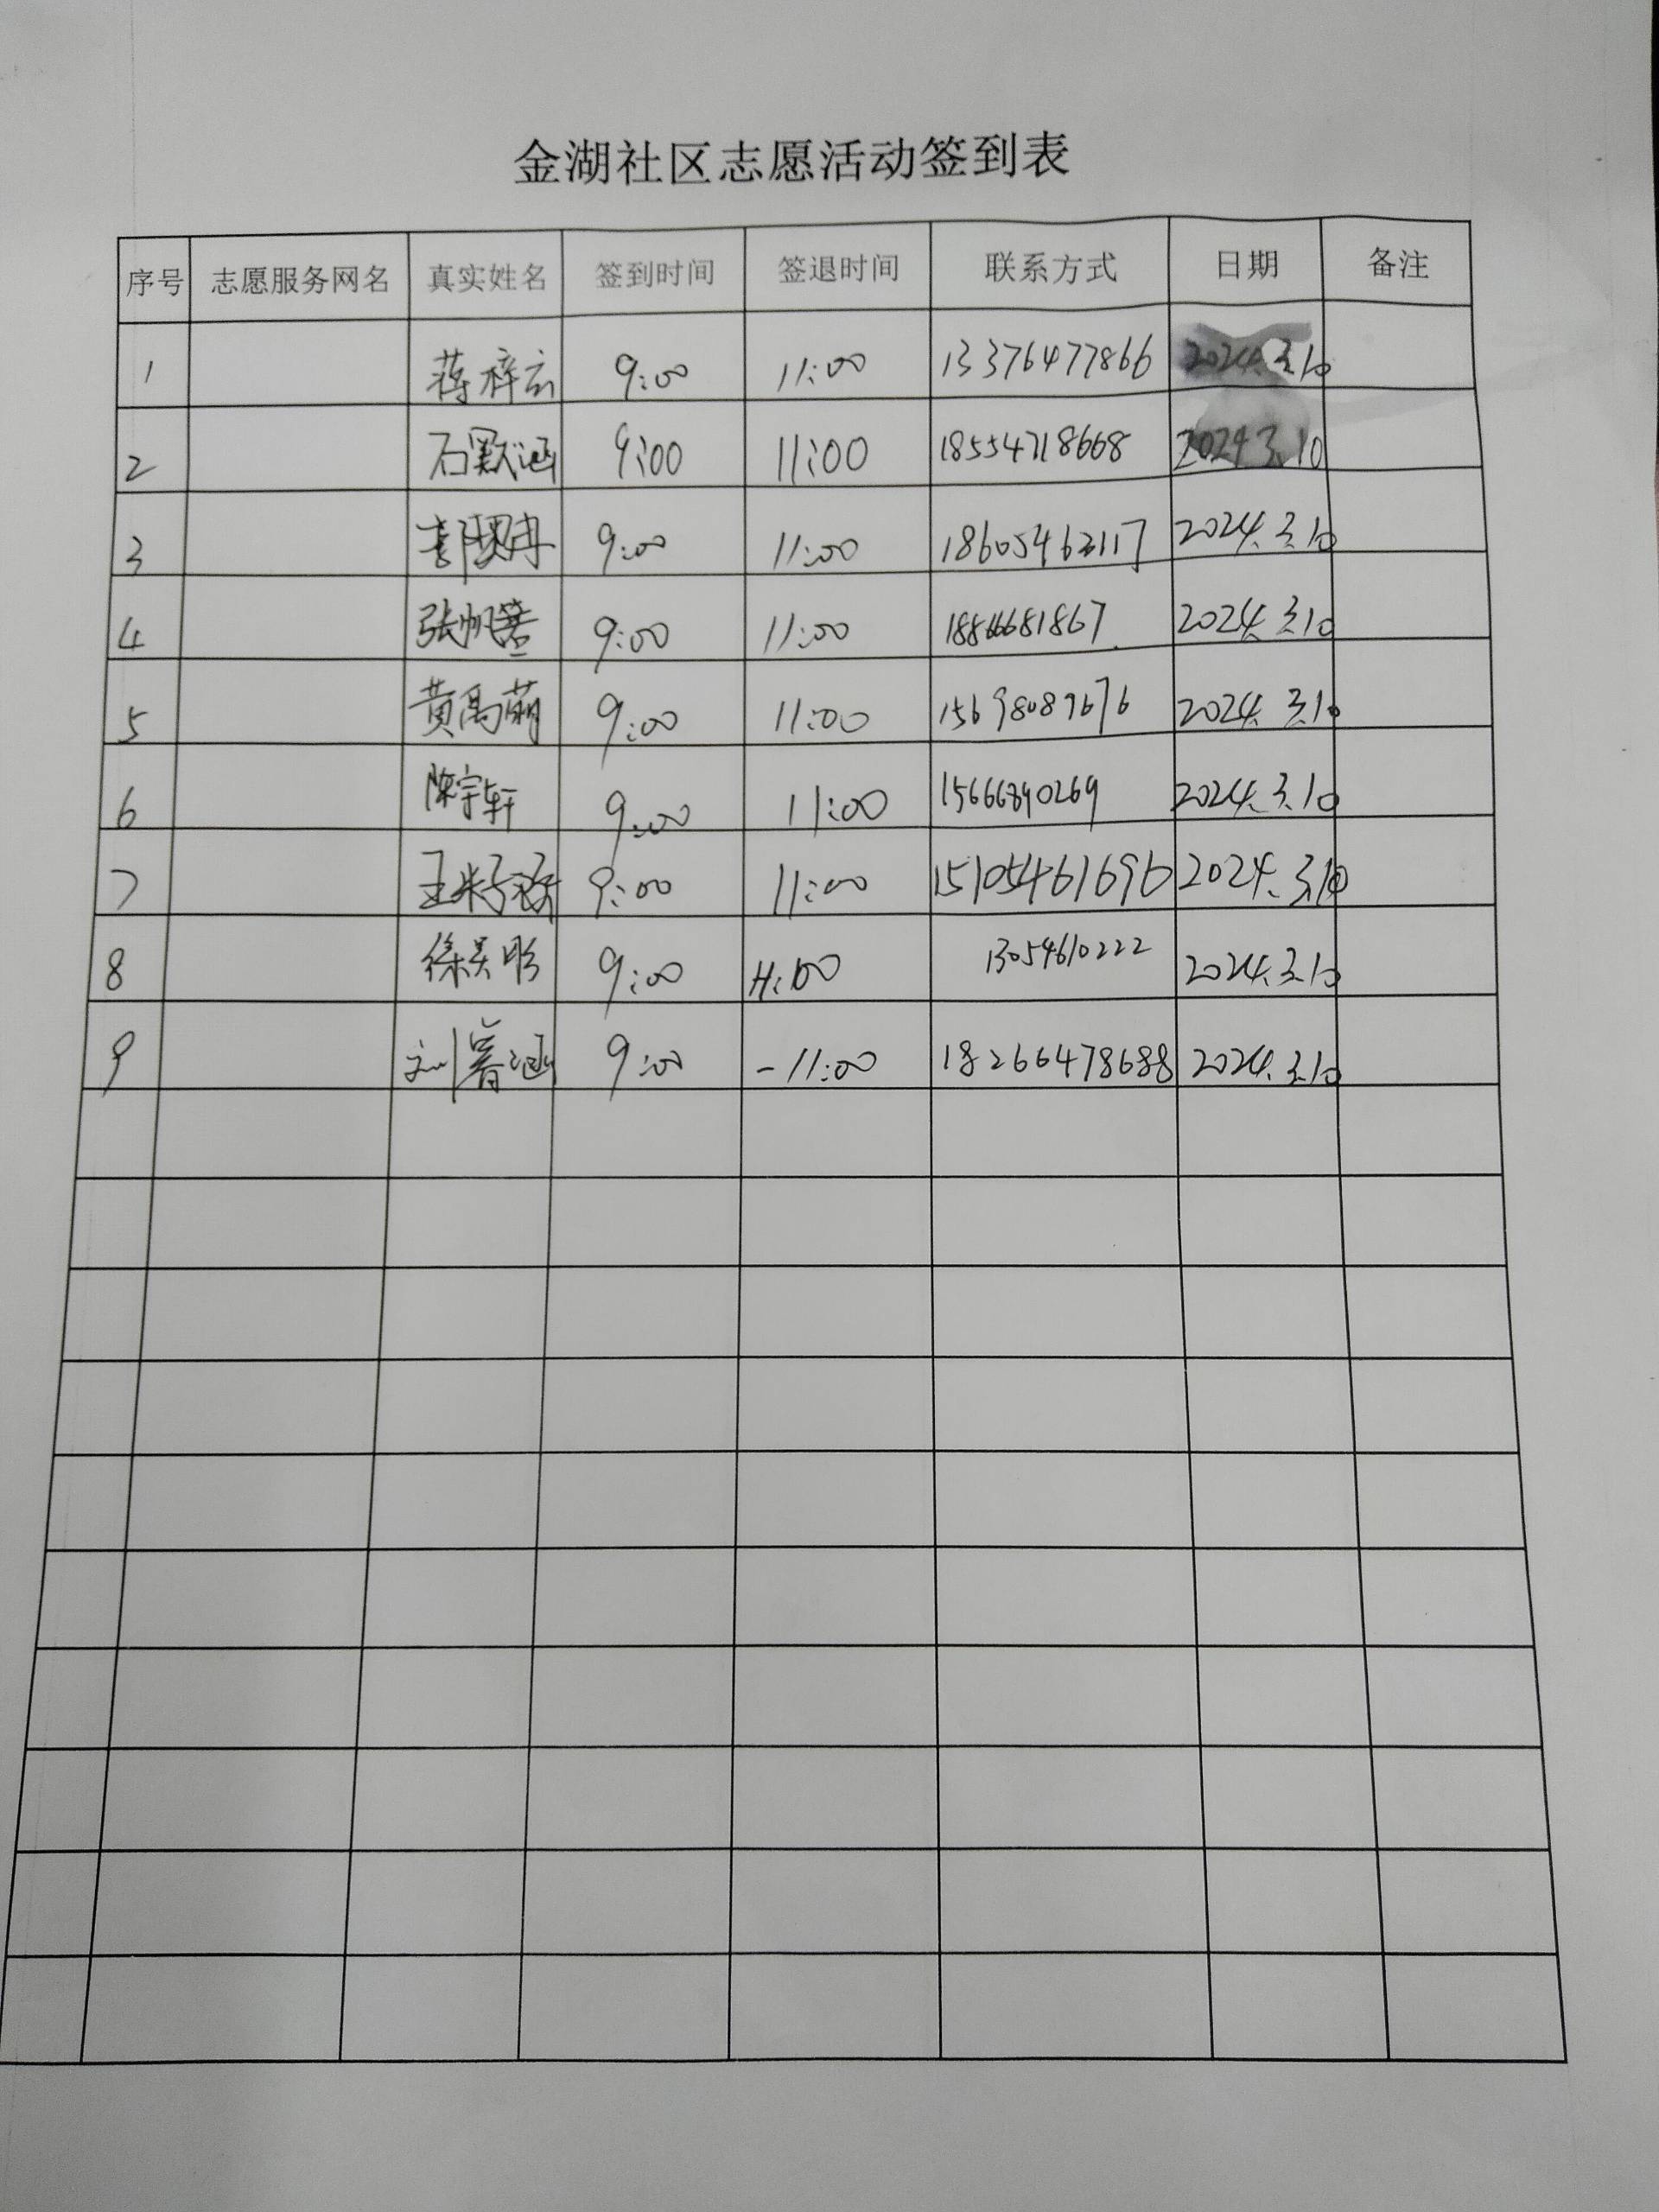 金湖社区志愿活动签到表
序号 志愿服务网名 真实姓名 签到时间 签退时间 联系方式 日期 备注
1 蒋梓云 9:00 11:00 13376477866 2024.3.10
2 石默涵 9:00 11:00 18554718668 2024.3.10
3 9:00 11:00 18605463117 2024.3.10
4 9:00 11:00 2024.3.10
5 黄禹萌 9:00 11:00 15698089676 2024.3.10
6 陈宇轩 9:00 11:00 15666890269 2024.3.10
7 9:00 11:00 15105461696 2024.3.10
8 9:00 11:00 13054610222 2024.3.10
9 9:00 -11:00 18266478688 2024.3.10